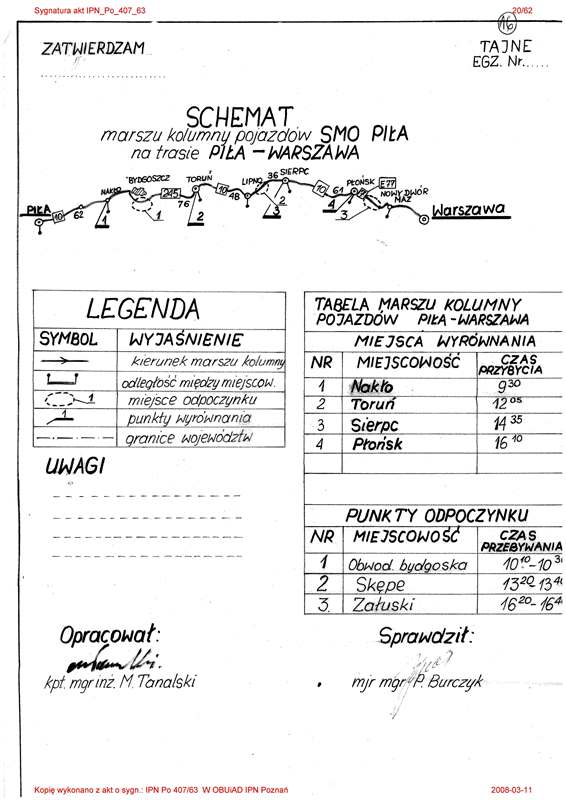 Sygnatura akt IPN_Po_407_63
20/62
16
ZATWIERDZAM
TAJNE
EGZ. Nr......
SCHEMAT
marszu kolumny pojazdów SMO PIŁA
na trasie PIŁA – WARSZAWA
PIŁA
10
62
NAKŁO
1
BYDGOSZCZ
1
245
76
TORUŃ
2
10
48
LIPNO
36
SIERPC
2
3
10
61
4
3
PŁOŃSK
E77
NOWY DWÓR
MAZ
Warszawa
LEGENDA
SYMBOL WYJAŚNIENIE
kierunek marszu kolumny
odległość między miejscow.
1 miejsce odpoczynku
1 punkty wyrównania
granice województw
UWAGI
TABELA MARSZU KOLUMNY
POJAZDÓW PIŁA – WARSZAWA
MIEJSCA WYRÓWNANIA
NR MIEJSCOWOŚĆ CZAS PRZYBYCIA
1 Nakło 9 30
2 Toruń 12 05
3 Sierpc 14 35
4 Płońsk 16 10
PUNKTY ODPOCZYNKU
NR MIEJSCOWOŚĆ CZAS PRZEBYWANIA
1 Obwod. bydgoska 10 10 – 10 3
2 Skępe 13 20 – 13 4
3. Załuski 16 20 – 16 4
Opracował:
kpt. mgr inż. M. Tanalski
Sprawdził:
mjr mgr P. Burczyk
Kopię wykonano z akt o sygn.: IPN Po 407/63 W OBUiAD IPN Poznań
2008-03-11